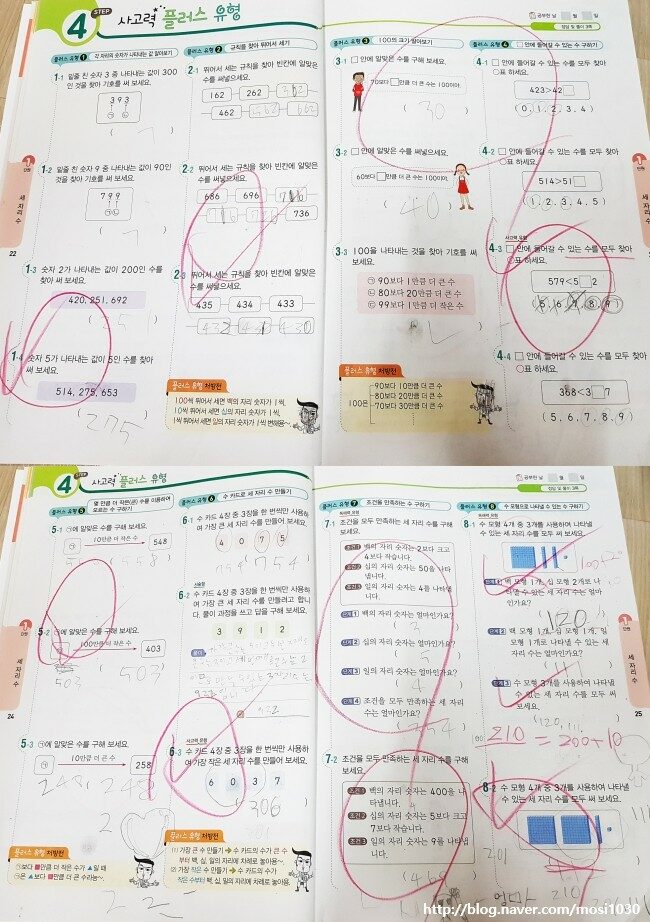 4 STEP 사고력 플러스 유형
플러스 유형 1 각 자리의 숫자가 나타내는 값 알아보기
1-1 밑줄 친 숫자 3 중 나타내는 값이 300
인 것을 찾아 기호를 써 보세요.
393
㉠ ㉡
1-2 밑줄 친 숫자 9 중 나타내는 값이 90인
것을 찾아 기호를 써 보세요.
799
㉠㉡
1-3 숫자 2가 나타내는 값이 200인 수를
찾아 써 보세요.
420, 251, 692
1-4 숫자 5가 나타내는 값이 5인 수를 찾아
써 보세요.
514, 275, 653
(275)
22
1 단원
세 자리 수
플러스 유형 2 규칙을 찾아 뛰어서 세기
2-1 뛰어서 세는 규칙을 찾아 빈칸에 알맞은
수를 써넣으세요.
162 262 362
462 562 662
2-2 뛰어서 세는 규칙을 찾아 빈칸에 알맞은
수를 써넣으세요.
686 696 706
716 726 736
2-3 뛰어서 세는 규칙을 찾아 빈칸에 알맞은
수를 써넣으세요.
435 434 433
432 431 430
플러스 유형 처방전
100씩 뛰어서 세면 백의 자리 숫자가 1씩,
10씩 뛰어서 세면 십의 자리 숫자가 1씩,
1씩 뛰어서 세면 일의 자리 숫자가 1씩 변해용~.
공부한 날 월 일
정답 및 풀이 3쪽
플러스 유형 3 100의 크기 알아보기
3-1 □ 안에 알맞은 수를 구해 보세요.
70보다 □만큼 더 큰 수는 100이야.
(30)
3-2 □ 안에 알맞은 수를 써넣으세요.
60보다 □만큼 더 큰 수는 100이야.
(40)
3-3 100을 나타내는 것을 찾아 기호를 써
보세요.
㉠ 90보다 1만큼 더 큰 수
㉡ 80보다 20만큼 더 큰 수
㉢ 99보다 1만큼 더 작은 수
플러스 유형 처방전
100은
90보다 10만큼 더 큰 수
80보다 20만큼 더 큰 수
70보다 30만큼 더 큰 수
플러스 유형 4 □ 안에 들어갈 수 있는 수 구하기
4-1 □ 안에 들어갈 수 있는 수를 모두 찾아
○표 하세요.
423>42□
(0, 1, 2, 3, 4)
4-2 □ 안에 들어갈 수 있는 수를 모두 찾아
○표 하세요.
514>51□
(1, 2, 3, 4, 5)
사고력 유형
4-3 □ 안에 들어갈 수 있는 수를 모두 찾아
○표 하세요.
579<5□2
(5, 6, 7, 8, 9)
4-4 □ 안에 들어갈 수 있는 수를 모두 찾아
○표 하세요.
368<3□7
(5, 6, 7, 8, 9)
1 단원
세 자리 수
4 STEP 사고력 플러스 유형
플러스 유형 5 몇 만큼 더 작은(큰) 수를 이용하여
모르는 수 구하기
5-1 ㉠에 알맞은 수를 구해 보세요.
㉠ 10만큼 더 작은 수 548
5-2 ㉠에 알맞은 수를 구해 보세요.
㉠ 100만큼 더 작은 수 403
503 (503)
5-3 ㉠에 알맞은 수를 구해 보세요.
㉠ 10만큼 더 큰 수 258
플러스 유형 처방전
㉠보다 ■만큼 더 작은 수가 ▲일 때
㉠은 ▲보다 ■만큼 더 큰 수라능~.
24
1 단원
세 자리 수
플러스 유형 6 수 카드로 세 자리 수 만들기
6-1 수 카드 4장 중 3장을 한 번씩만 사용하
여 가장 큰 세 자리 수를 만들어 보세요.
4 0 7 5
(754)
서술형
6-2 수 카드 4장 중 3장을 한 번씩만 사용하
여 가장 큰 세 자리 수를 만들려고 합니
다. 풀이 과정을 쓰고 답을 구해 보세요.
3 9 1 2
풀이
답 932
사고력 유형
6-3 수 카드 4장 중 3장을 한 번씩만 사용하
여 가장 작은 세 자리 수를 만들어 보세요.
6 0 3 7
(306)
플러스 유형 처방전
(1) 가장 큰 수 만들기 → 수 카드의 수가 큰 수
부터 백, 십, 일의 자리에 차례로 놓아용~.
(2) 가장 작은 수 만들기 → 수 카드의 수가
작은 수부터 백, 십, 일의 자리에 차례로 놓아용.
플러스 유형 7 조건을 만족하는 수 구하기
독해력 유형
7-1 조건을 모두 만족하는 세 자리 수를 구해
보세요.
조건1 백의 자리 숫자는 2보다 크고
4보다 작습니다.
조건2 십의 자리 숫자는 50을 나타
냅니다.
조건3 일의 자리 숫자는 4를 나타냅
니다.
단계1 백의 자리 숫자는 얼마인가요?
(3)
단계2 십의 자리 숫자는 얼마인가요?
(5)
단계3 일의 자리 숫자는 얼마인가요?
(4)
단계4 조건을 모두 만족하는 세 자리
수는 얼마인가요?
(354)
7-2 조건을 모두 만족하는 세 자리 수를 구해
보세요.
조건1 백의 자리 숫자는 400을 나
타냅니다.
조건2 십의 자리 숫자는 5보다 크고
7보다 작습니다.
조건3 일의 자리 숫자는 9를 나타냅
니다.
(469)
공부한 날 월 일
정답 및 풀이 3쪽
플러스 유형 8 수 모형으로 나타낼 수 있는 수 구하기
독해력 유형
8-1 수 모형 4개 중 3개를 사용하여 나타낼
수 있는 세 자리 수를 모두 구해 보세요.
단계1 백 모형 1개, 십 모형 2개로 나타
낼 수 있는 세 자리 수는 얼마인
가요?
120
단계2 백 모형 1개, 십 모형 1개, 일
모형 1개로 나타낼 수 있는 세
자리 수는 얼마인가요?
단계3 수 모형 3개를 사용하여 나타낼
수 있는 세 자리 수를 모두 써 보
세요.
(120, 111)
210 = 200+10
8-2 수 모형 4개 중 3개를 사용하여 나타낼
수 있는 세 자리 수를 모두 구해 보세요.
201
210
25
1 단원
세 자리 수
http://blog.naver.com/mosi1030